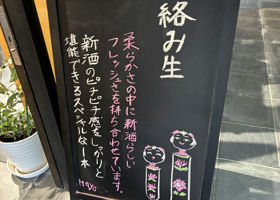 絡み生
柔らかさの中に新酒らしい
フレッシュさを持ち合わせています。
新酒のピチピチ感をしっかりと
堪能できるスペシャルな1本